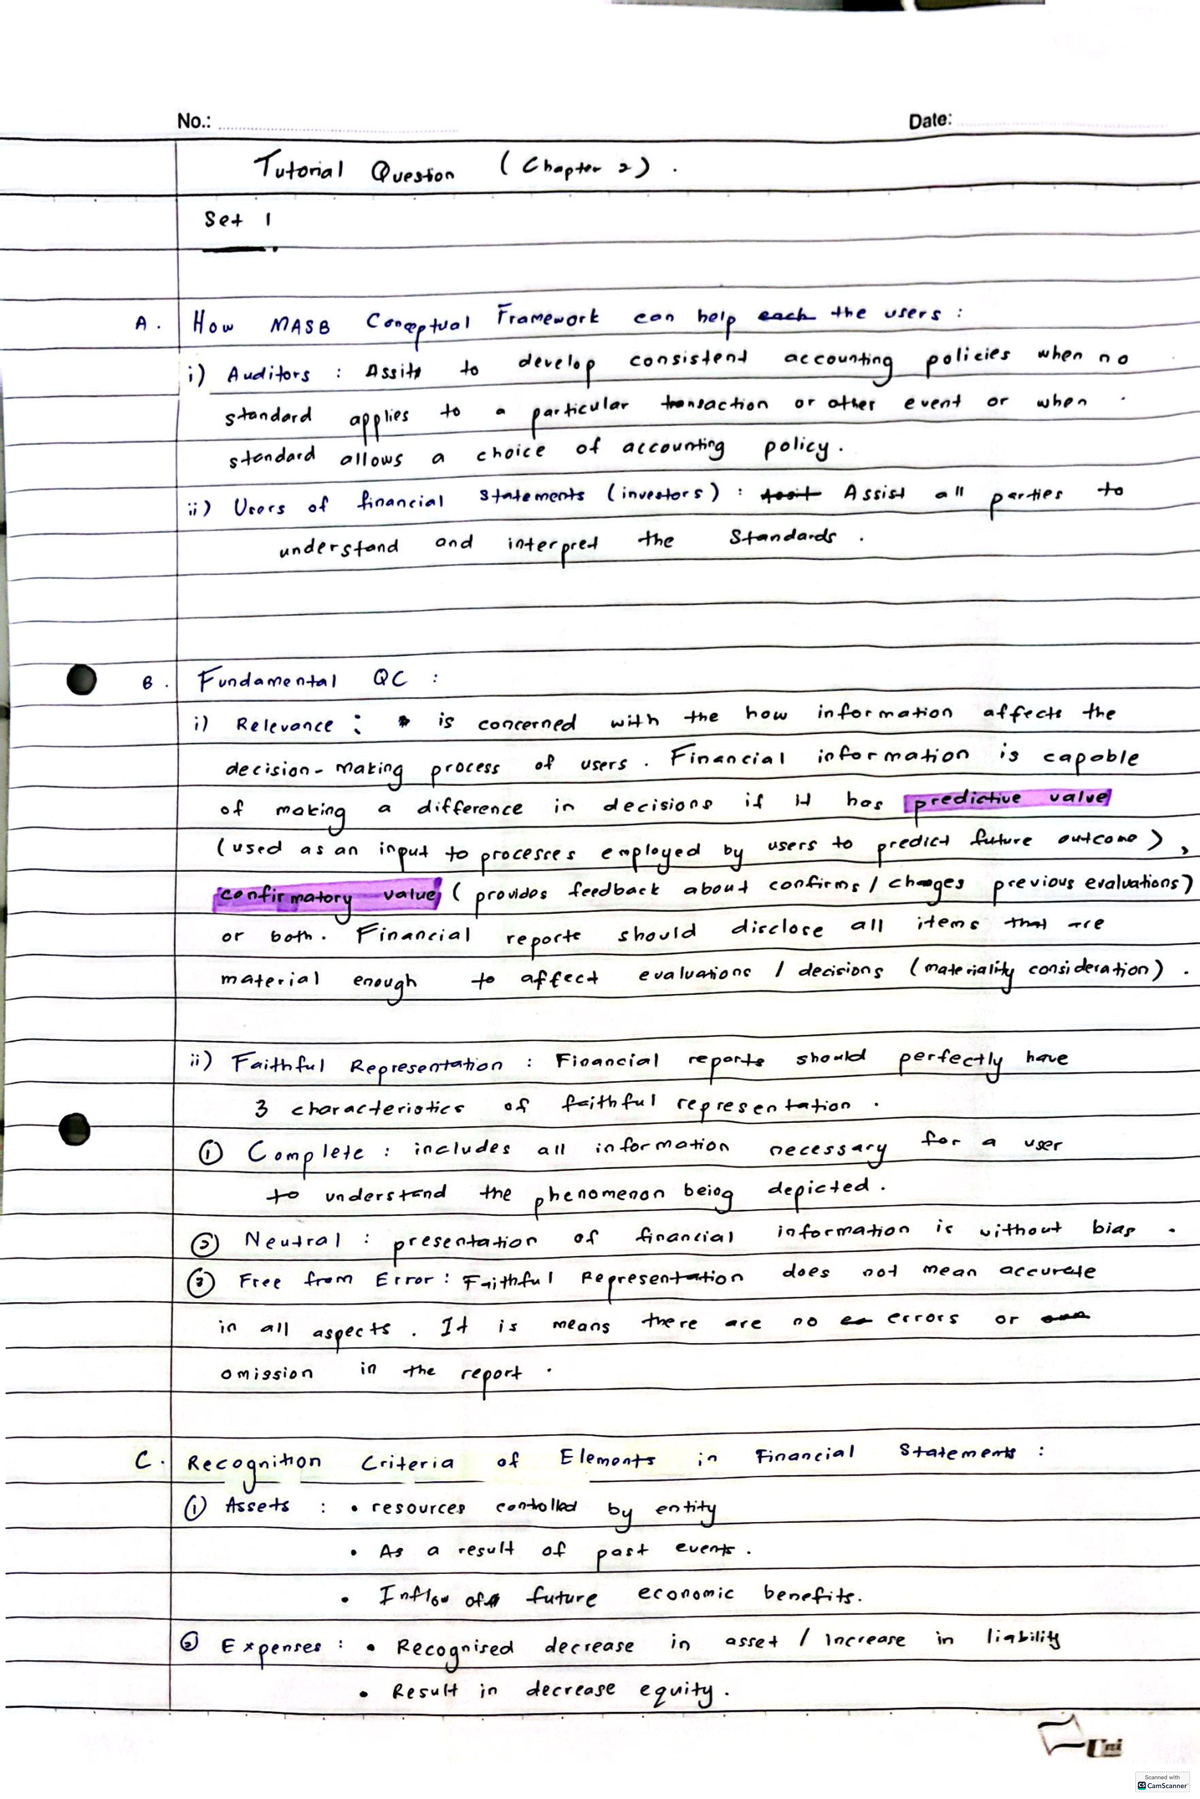 No.: Date:
Tutorial Question (Chapter 2).
Set 1
A. How MASB Conceptual Framework can help each the users :
i) Auditors : Assits to develop consistent accounting policies when no
standard applies to a particular transaction or other event or when
standard allows a choice of accounting policy.
ii) Users of financial statements (investors) : Assist all parties to
understand and interpret the Standards.
B. Fundamental QC :
i) Relevance : is concerned with the how information affects the
decision-making process of users. Financial information is capable
of making a difference in decisions if it has predictive value
(used as an input to processes employed by users to predict future outcome),
confirmatory value (provides feedback about confirms / changes previous evaluations)
or both. Financial reports should disclose all items that are
material enough to affect evaluations / decisions (materiality consideration).
ii) Faithful Representation : Financial reports should perfectly have
3 characteristics of faithful representation.
① Complete : includes all information necessary for a user
to understand the phenomenon being depicted.
② Neutral : presentation of financial information is without bias.
③ Free from Error : Faithful Representation does not mean accurate
in all aspects. It is means there are no errors or
omission in the report.
C. Recognition Criteria of Elements in Financial Statements :
① Assets : • resources controlled by entity
• As a result of past events.
• Inflow of future economic benefits.
② Expenses : • Recognised decrease in asset / increase in liability
• Result in decrease equity.
Uni
Scanned with
CS CamScanner